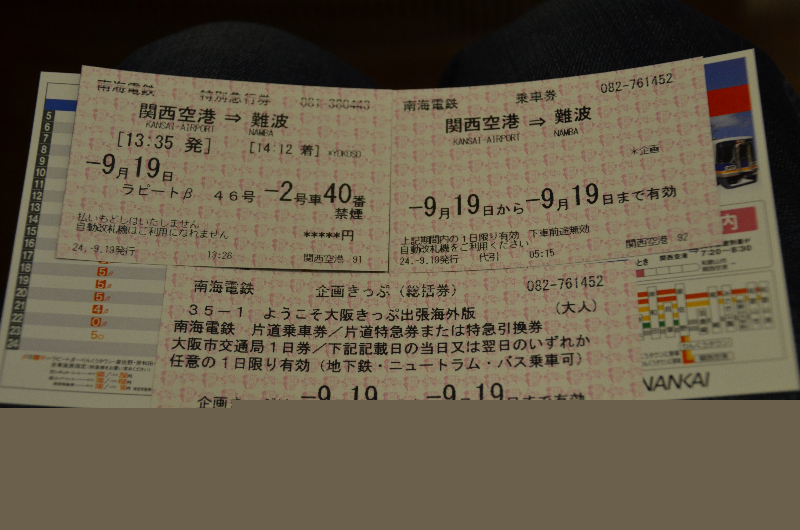 南海電鉄 特別急行券 081-380443
関西空港 ⇒ 難波
KANSAI-AIRPORT NAMBA
[13:35 発] [14:12 着] *YOKOSO
-9月19日
ラピートβ 46号 -2号車40番
禁煙
払いもどしはいたしません
自動改札機はご利用になれません *****円
24.-9.19発行 13:26 関西空港 91
南海電鉄 乗車券 082-761452
関西空港 ⇒ 難波
KANSAI-AIRPORT NAMBA
*企画
-9月19日から-9月19日まで有効
上記期間内の1日限り有効 下車前途無効
自動改札機をご利用ください
24.-9.19発行 代引 05:15 関西空港 92
南海電鉄 企画きっぷ(総括券) 082-761452
35-1 ようこそ大阪きっぷ出張海外版 (大人)
南海電鉄 片道乗車券/片道特急券または特急引換券
大阪市交通局1日券/下記記載日の当日又は翌日のいずれか
任意の1日限り有効(地下鉄・ニュートラム・バス乗車可)
-9 19 -9 19日まで有効
5
6
7
8
9
10
11
12
13
14
15
16
17
18
19
20
21
22
23
24
内
7:20~8:30
NANKAI